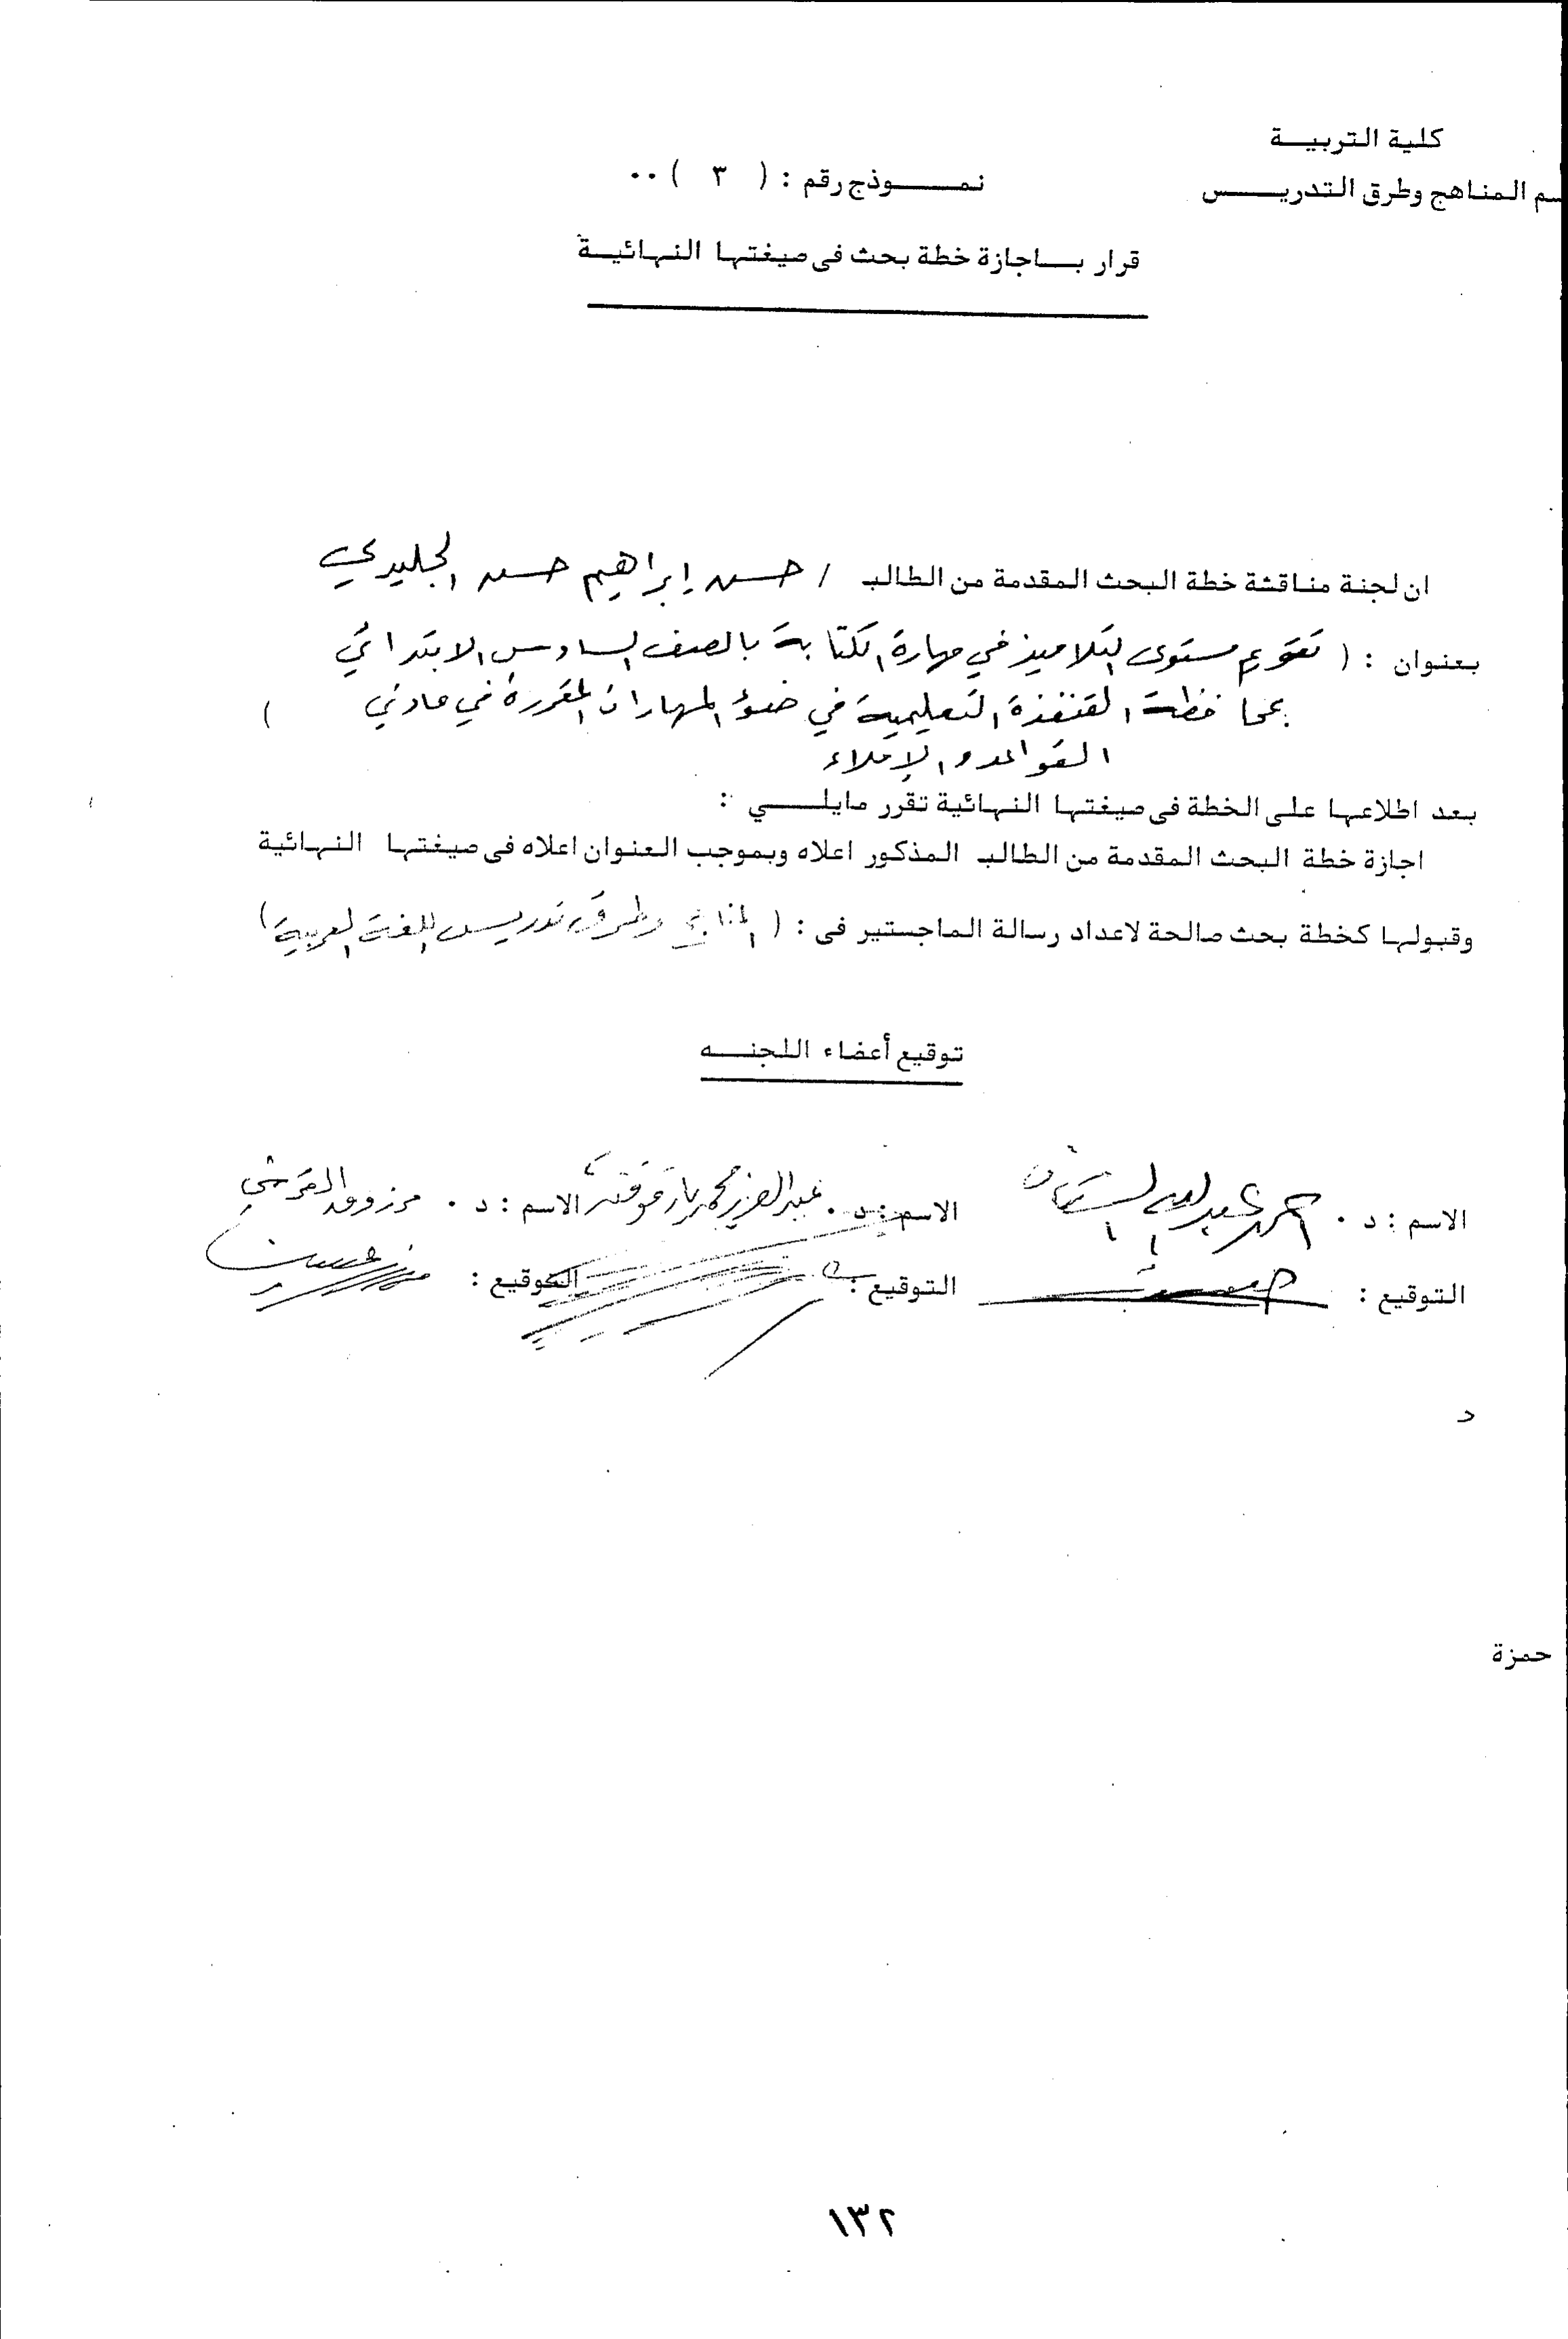 كلية التربيــة
سم المناهج وطرق التدريــــس
نمـــــوذج رقم : ( ٣ ) ٠٠
قرار بـــاجازة خطة بحث فى صيغتها النهائيــة
ان لجنة مناقشة خطة البحث المقدمة من الطالب / حسن إبراهيم حسن الجليدي
بعنوان : ( تقويم مستوى التلاميذ في مهارة الكتابة بالصف السادس الابتدائي
بمحافظة القنفذة التعليمية في ضوء المهارات المقررة في مادتي )
القواعد والإملاء
بعد اطلاعها على الخطة فى صيغتها النهائية تقرر مايلــــي :
اجازة خطة البحث المقدمة من الطالب المذكور اعلاه وبموجب العنوان اعلاه فى صيغتها النهائية
وقبولها كخطة بحث صالحة لاعداد رسالة الماجستير فى : ( المناهج وطرق تدريس اللغة العربية )
توقيع أعضاء اللجنــه
الاسم : د ٠ عبدالله
الاسم : د ٠ عبدالعزيز محمد
الاسم : د ٠ مرزوق القرشي
التوقيع :
التوقيع :
التوقيع :
د
حمزة
١٣٢